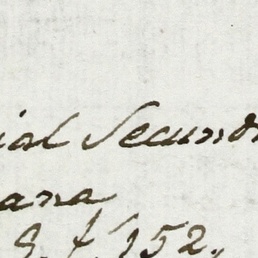 ial Secund
ana
9. f. 152.,